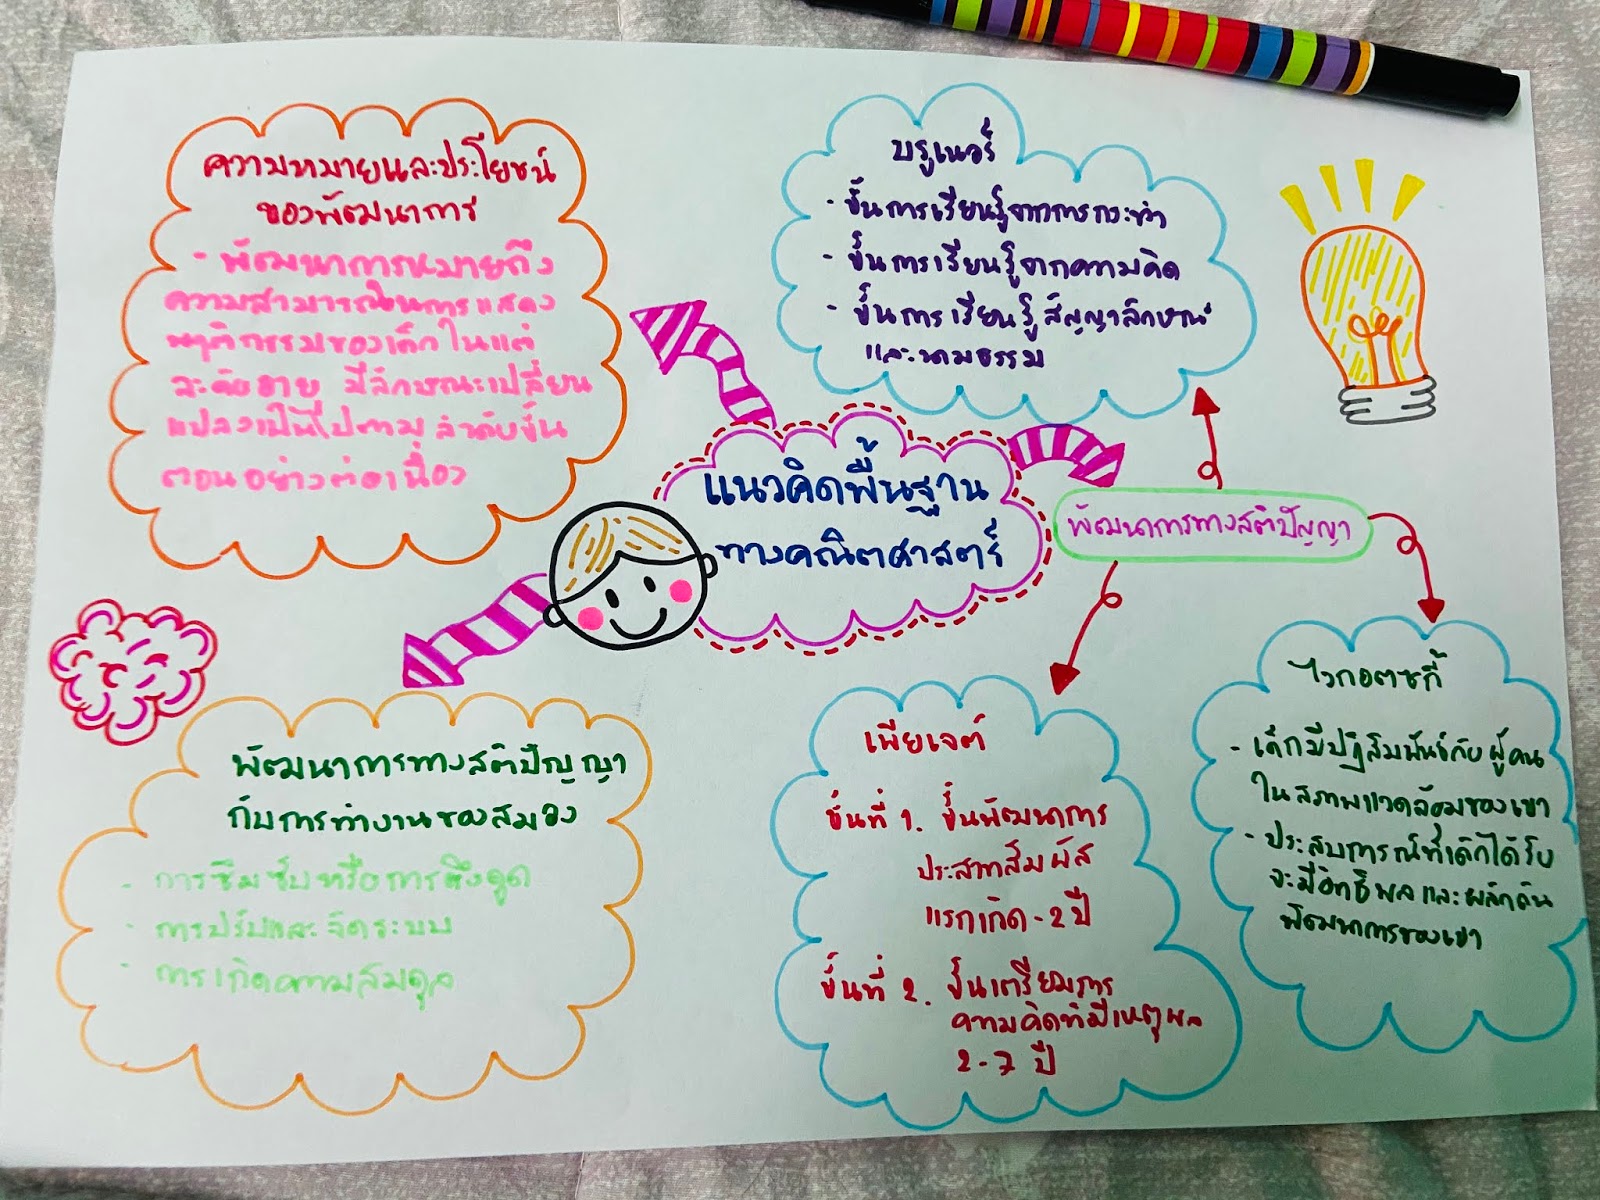 ความหมายและประโยชน์
ของพัฒนาการ
- พัฒนาการหมายถึง
ความสามารถในการแสดง
พฤติกรรมของเด็กในแต่
ละดับอายุ มีลักษณะเปลี่ยน
แปลงเป็นไปตามลำดับขั้น
ตอนอย่างต่อเนื่อง
บรูเนอร์
- ขั้นการเรียนรู้จากการกระทำ
- ขั้นการเรียนรู้จากความคิด
- ขั้นการเรียนรู้สัญญาลักษณ์
และนามธรรม
แนวคิดพื้นฐาน
ทางคณิตศาสตร์
พัฒนาการทางสติปัญญา
พัฒนาการทางสติปัญญา
กับการทำงานของสมอง
- การซึมซับหรือการดึงดูด
- การปรับและจัดระบบ
- การเกิดความสมดุล
เพียเจต์
ขั้นที่ 1. ขั้นพัฒนาการ
ประสาทสัมผัส
แรกเกิด - 2 ปี
ขั้นที่ 2. ขั้นเตรียมการ
ความคิดที่มีเหตุผล
2 - 7 ปี
ไวกอตซกี้
- เด็กมีปฏิสัมพันธ์กับผู้คน
ในสภาพแวดล้อมของเขา
- ประสบการณ์ที่เด็กได้รับ
จะมีอิทธิพลและผลักดัน
พัฒนาการของเขา